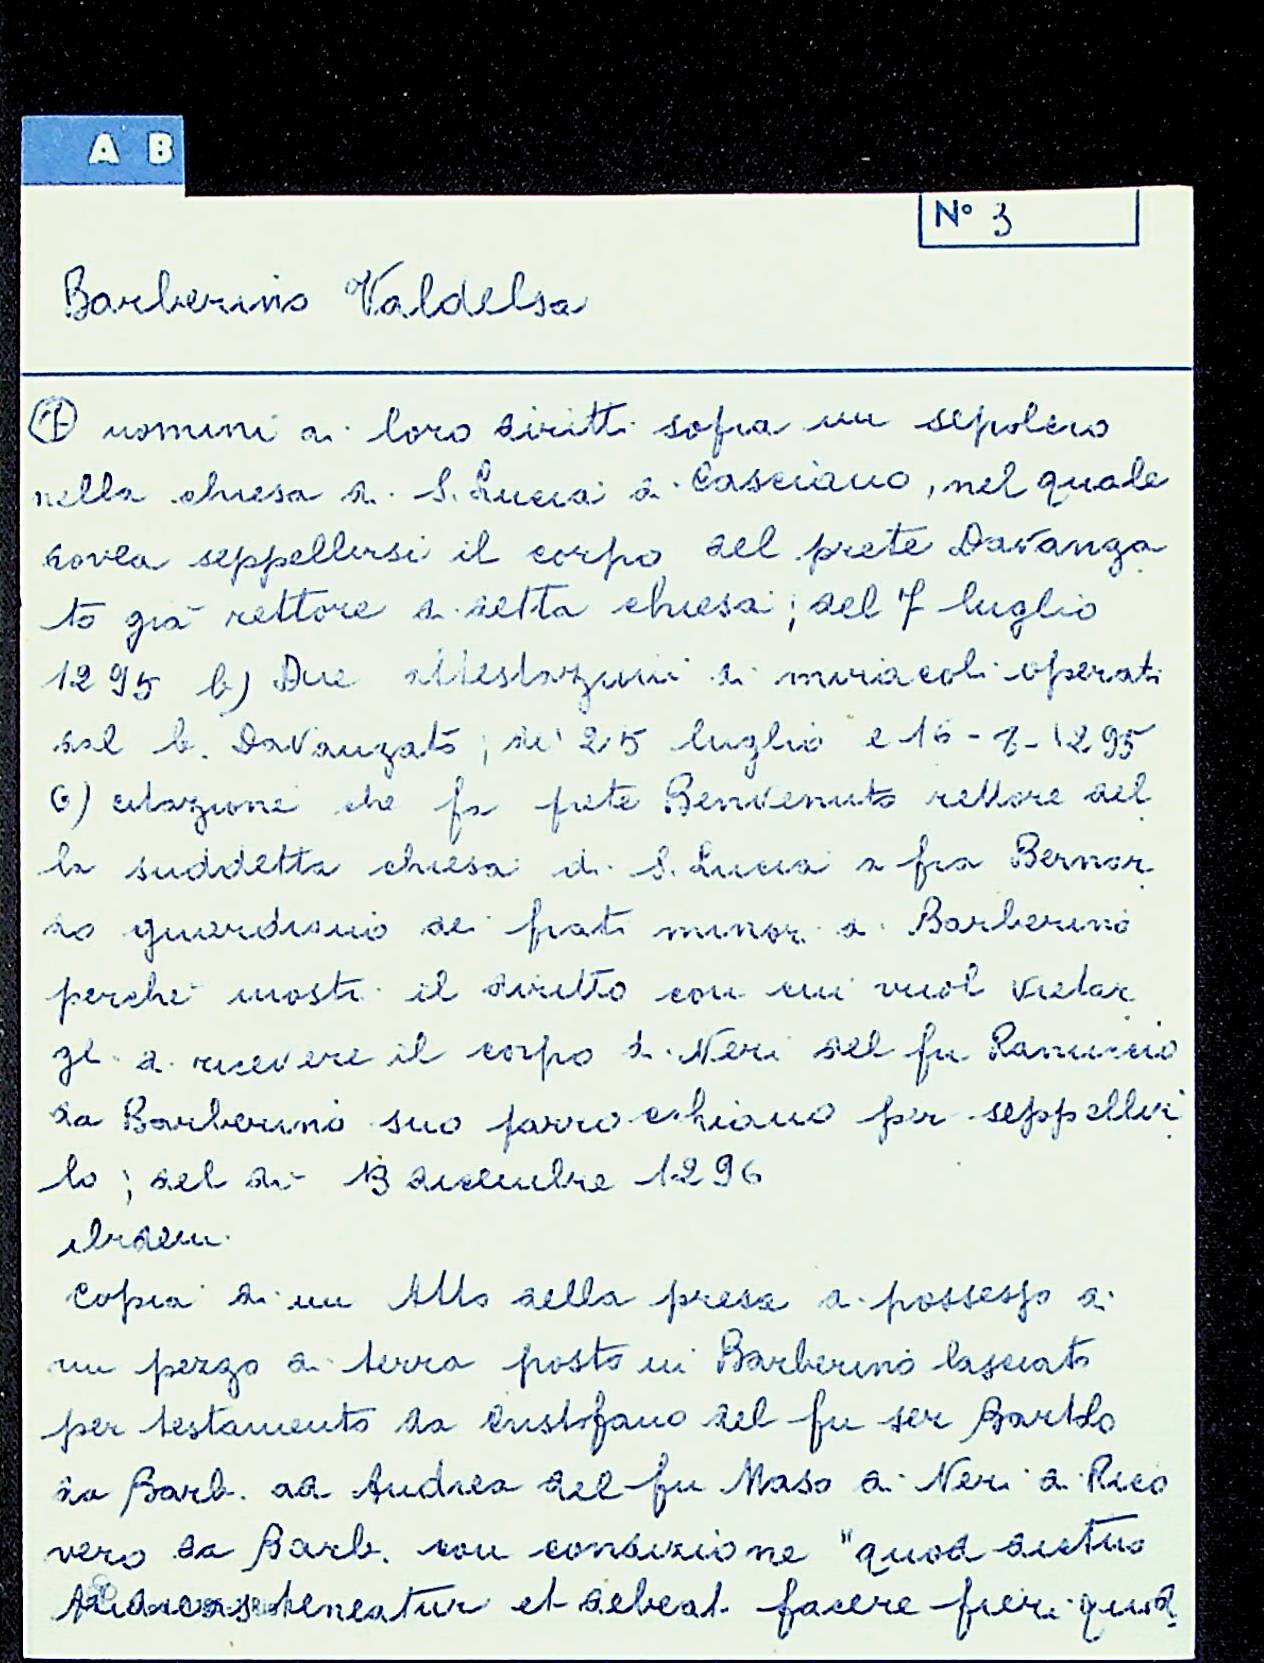 A B
N° 3
Barberino Valdelsa
1 uomini di loro diritti sopra un sepolcro
nella chiesa di S. Lucia di Casciano, nel quale
dovea seppellirsi il corpo del prete Davanza
to già rettore di detta chiesa; del 7 luglio
1295 b) Due attestazioni di miracoli operati
dal b. Davanzato; de' 25 luglio e 16-8-1295
c) citazione che fa prete Benvenuto rettore del
la suddetta chiesa di S. Lucia a fra Bernar
do guardiano dei frati minori di Barberino
perché mostri il diritto con cui vuol vietar
gli di ricevere il corpo di Neri del fu Ranuccio
da Barberino suo parrocchiano per seppellir
lo; del dì 13 dicembre 1296
ibidem.
Copia di un Atto della presa di possesso di
un pezzo di terra posto in Barberino lasciato
per testamento da Cristofano del fu ser Bartolo
da Barb. ad Andrea del fu Maso di Neri di Rico
vero da Barb. con condizione "quod dictus
Andreas teneatur et debeat facere fieri quod